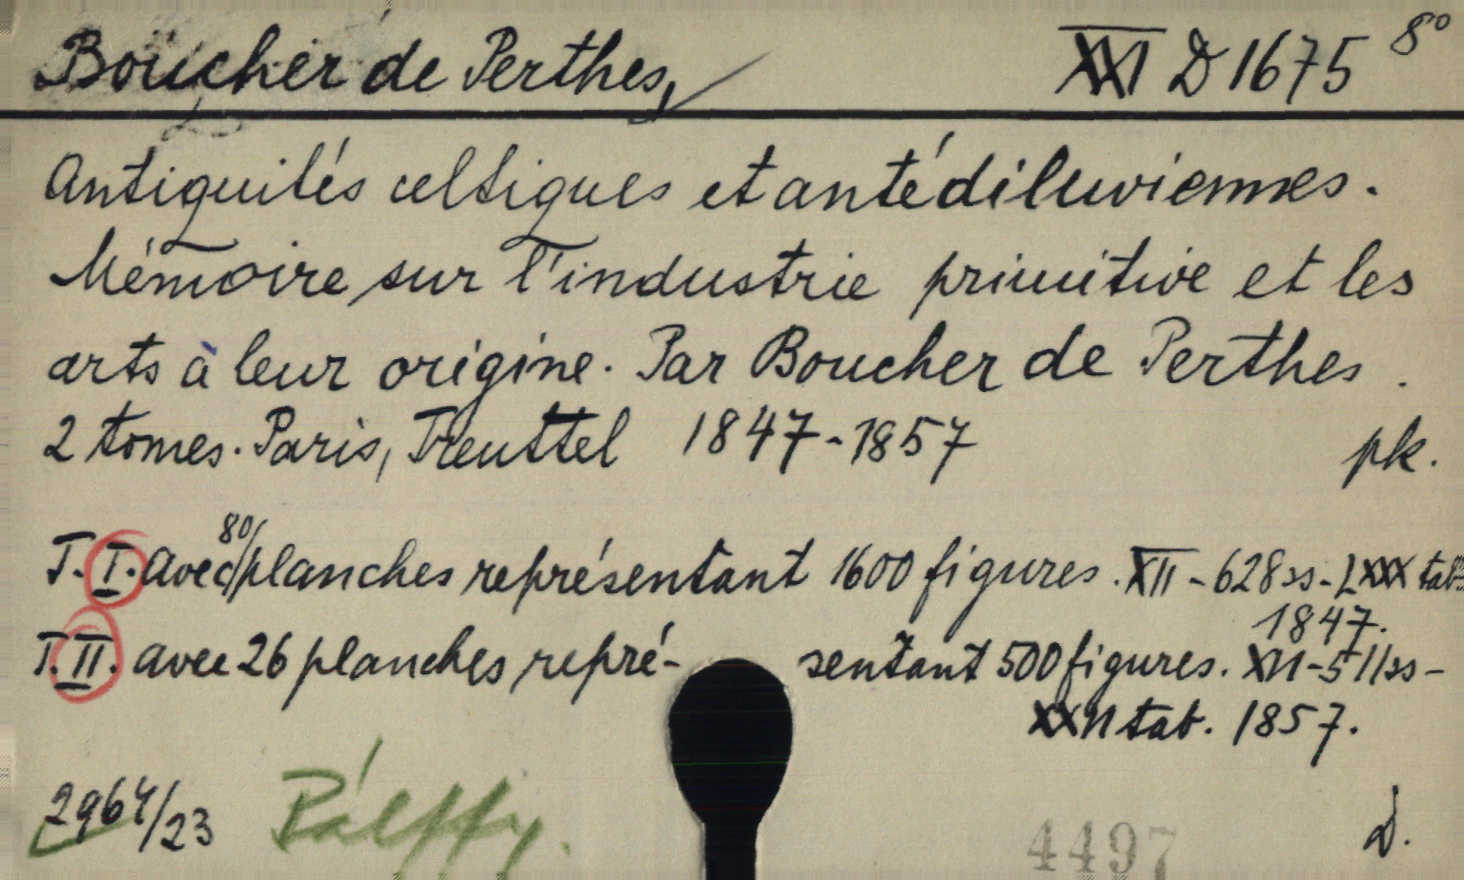 Boucher de Perthes, XXI D 1675 8°
Antiquités celtiques et antédiluviennes.
Mémoire sur l'industrie primitive et les
arts à leur origine. Par Boucher de Perthes.
2 tomes. Paris, Treuttel 1847-1857 pk.
T. I. avec 80 planches représentant 1600 figures. XII-628ss-LXXX tab.
1847.
T. II. avec 26 planches repré- sentant 500 figures. XVI-511ss-
XXVI tab. 1857.
2964/23 Pálffy. 4497 d.